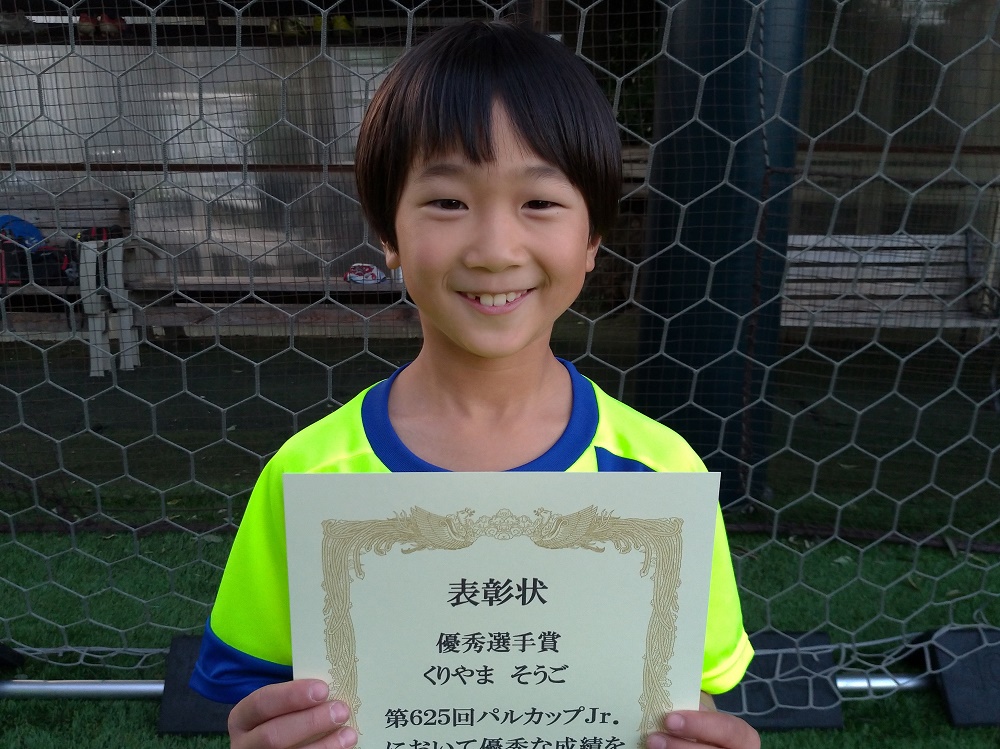 表彰状
優秀選手賞
くりやま そうご
第625回パルカップJr.
において優秀な成績を